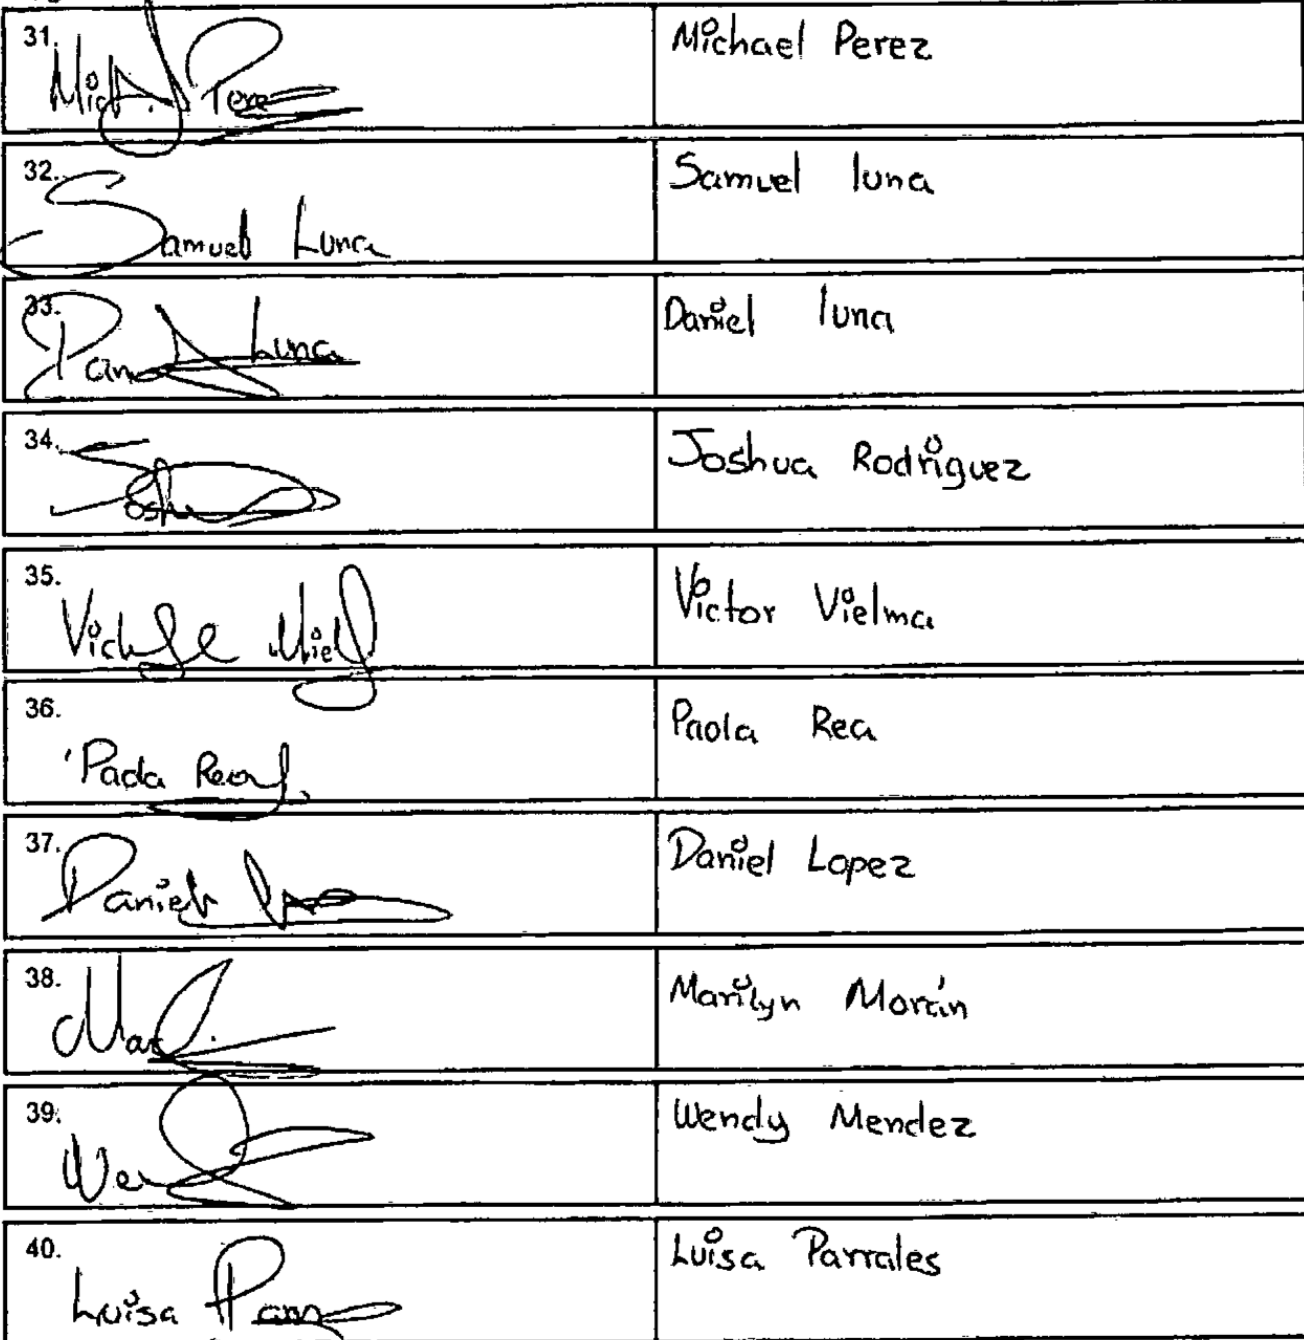 31. Michael Perez
32. Samuel Luna Samuel luna
33. Luna Daniel luna
34. Joshua Rodriguez
35. Victor Vielma
36. Paola Rea Paola Rea
37. Daniel Daniel Lopez
38. Marilyn Morán
39. Wendy Mendez
40. Luisa Luisa Parrales